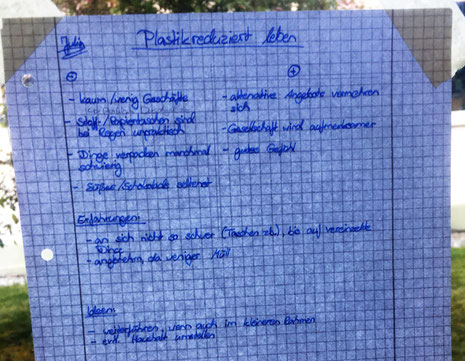 Julia
Plastikreduziert leben
- kaum/wenig Geschäfte
- Stoff-/Papiertaschen sind
bei Regen unpraktisch
- Dinge verpacken manchmal
schwierig
- Süßes/Schokolade
- alternative Angebote vermehren
sich
- Gesellschaft wird aufmerksamer
- gutes Gefühl
Erfahrungen:
- an sich nicht so schwer (Taschen zb.), bis auf vereinzelte
- angenehm, da weniger Müll
Ideen:
- weiterführen, wenn auch im kleineren Rahmen
- evtl. Haushalt umstellen